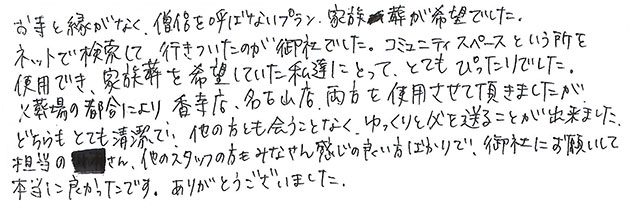 お寺と縁がなく、僧侶を呼ばないプラン、家族葬が希望でした。
ネットで検索して、行きついたのが御社でした。コミュニティスペースという所を
使用でき、家族葬を希望していた私達にとって、とてもぴったりでした。
火葬場の都合により、香寺店、名古山店、両方を使用させて頂きましたが、
どちらもとても清潔で、他の方とも会うことなく、ゆっくりと父を送ることが出来ました。
担当の さん、他のスタッフの方もみなさん感じの良い方ばかりで、御社にお願いして
本当に良かったです。ありがとうございました。